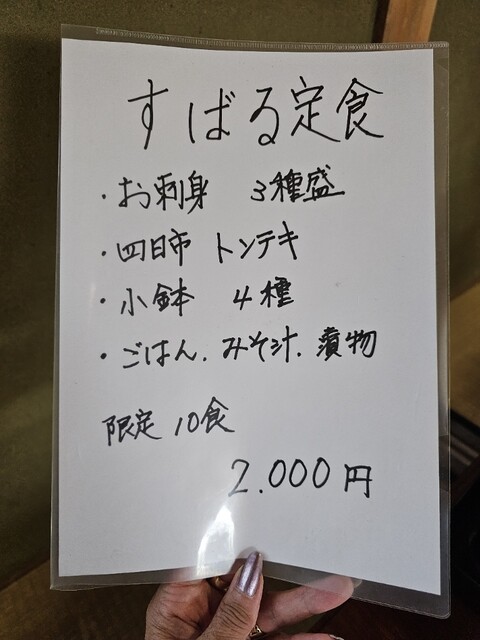 すばる定食
・お刺身 3種盛
・四日市 トンテキ
・小鉢 4種
・ごはん.みそ汁.漬物
限定 10食
2.000円